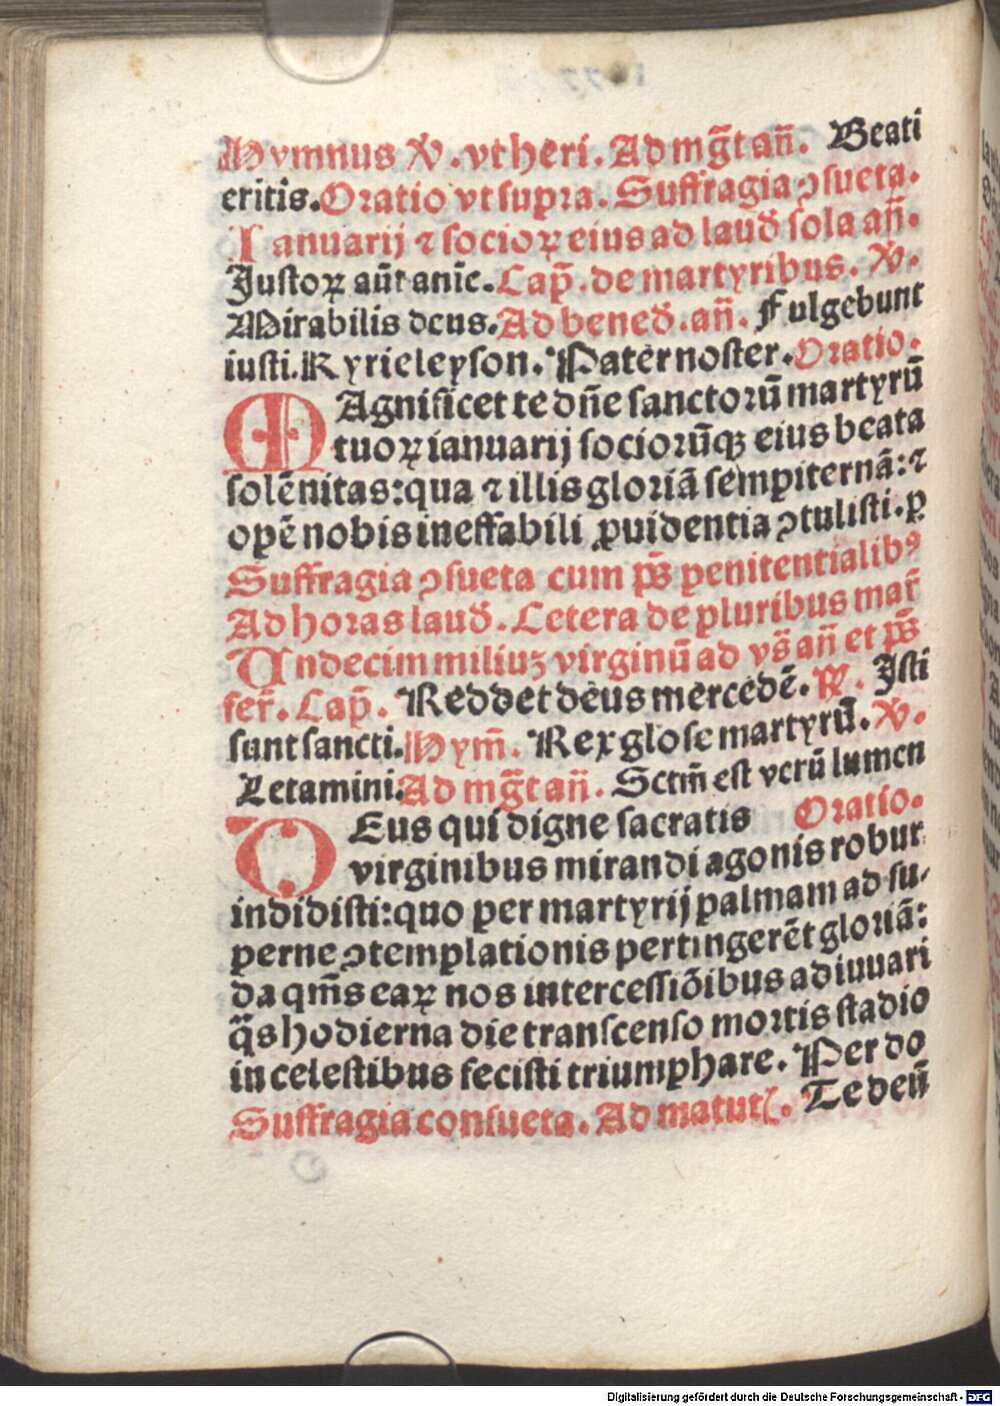 Hymnus ℣. vt heri. Ad mg̃t añ. Beati
eritis. Oratio vt supra. Suffragia ꝯsueta.
Ianuarij ⁊ socioꝝ eius ad laud̃ sola añ.
Justoꝝ aũt anie᷑. Cap̃. de martyribus. ℣.
Mirabilis deus. Ad bened̃. añ. Fulgebunt
iusti. Kyrieleyson. Pater noster. Oratio.
MAgnificet te dñe sanctorũ martyrũ
tuoꝝ ianuarij sociorũqꝫ eius beata
solẽnitas: qua ⁊ illis gloriã sempiternã: ⁊
opẽ nobis ineffabili ꝓuidentia ꝯtulisti. ꝑ
Suffragia ꝯsueta cum ps̃ penitentialibꝰ
Ad horas laud̃. Cetera de pluribus mar̃
Undecim miliuꝫ virginũ ad vs̃ añ et ps̃
fer̃. Cap̃. Reddet deus mercedẽ. ℟. Isti
sunt sancti. Hym̃. Rex glose martyrũ. ℣.
Letamini. Ad mg̃t añ. Sctm̃ est verũ lumen
DEus qui digne sacratis Oratio.
virginibus mirandi agonis robur
indidisti: quo per martyrij palmam ad su-
perne ꝯtemplationis pertingerẽt gloriã:
da qm̃s eaꝝ nos intercessiõibus adiuuari
q̃s hodierna die transcenso mortis stadio
in celestibus fecisti triumphare. Per do
Suffragia consueta. Ad matut̃. Te deũ
Digitalisierung gefördert durch die Deutsche Forschungsgemeinschaft - DFG